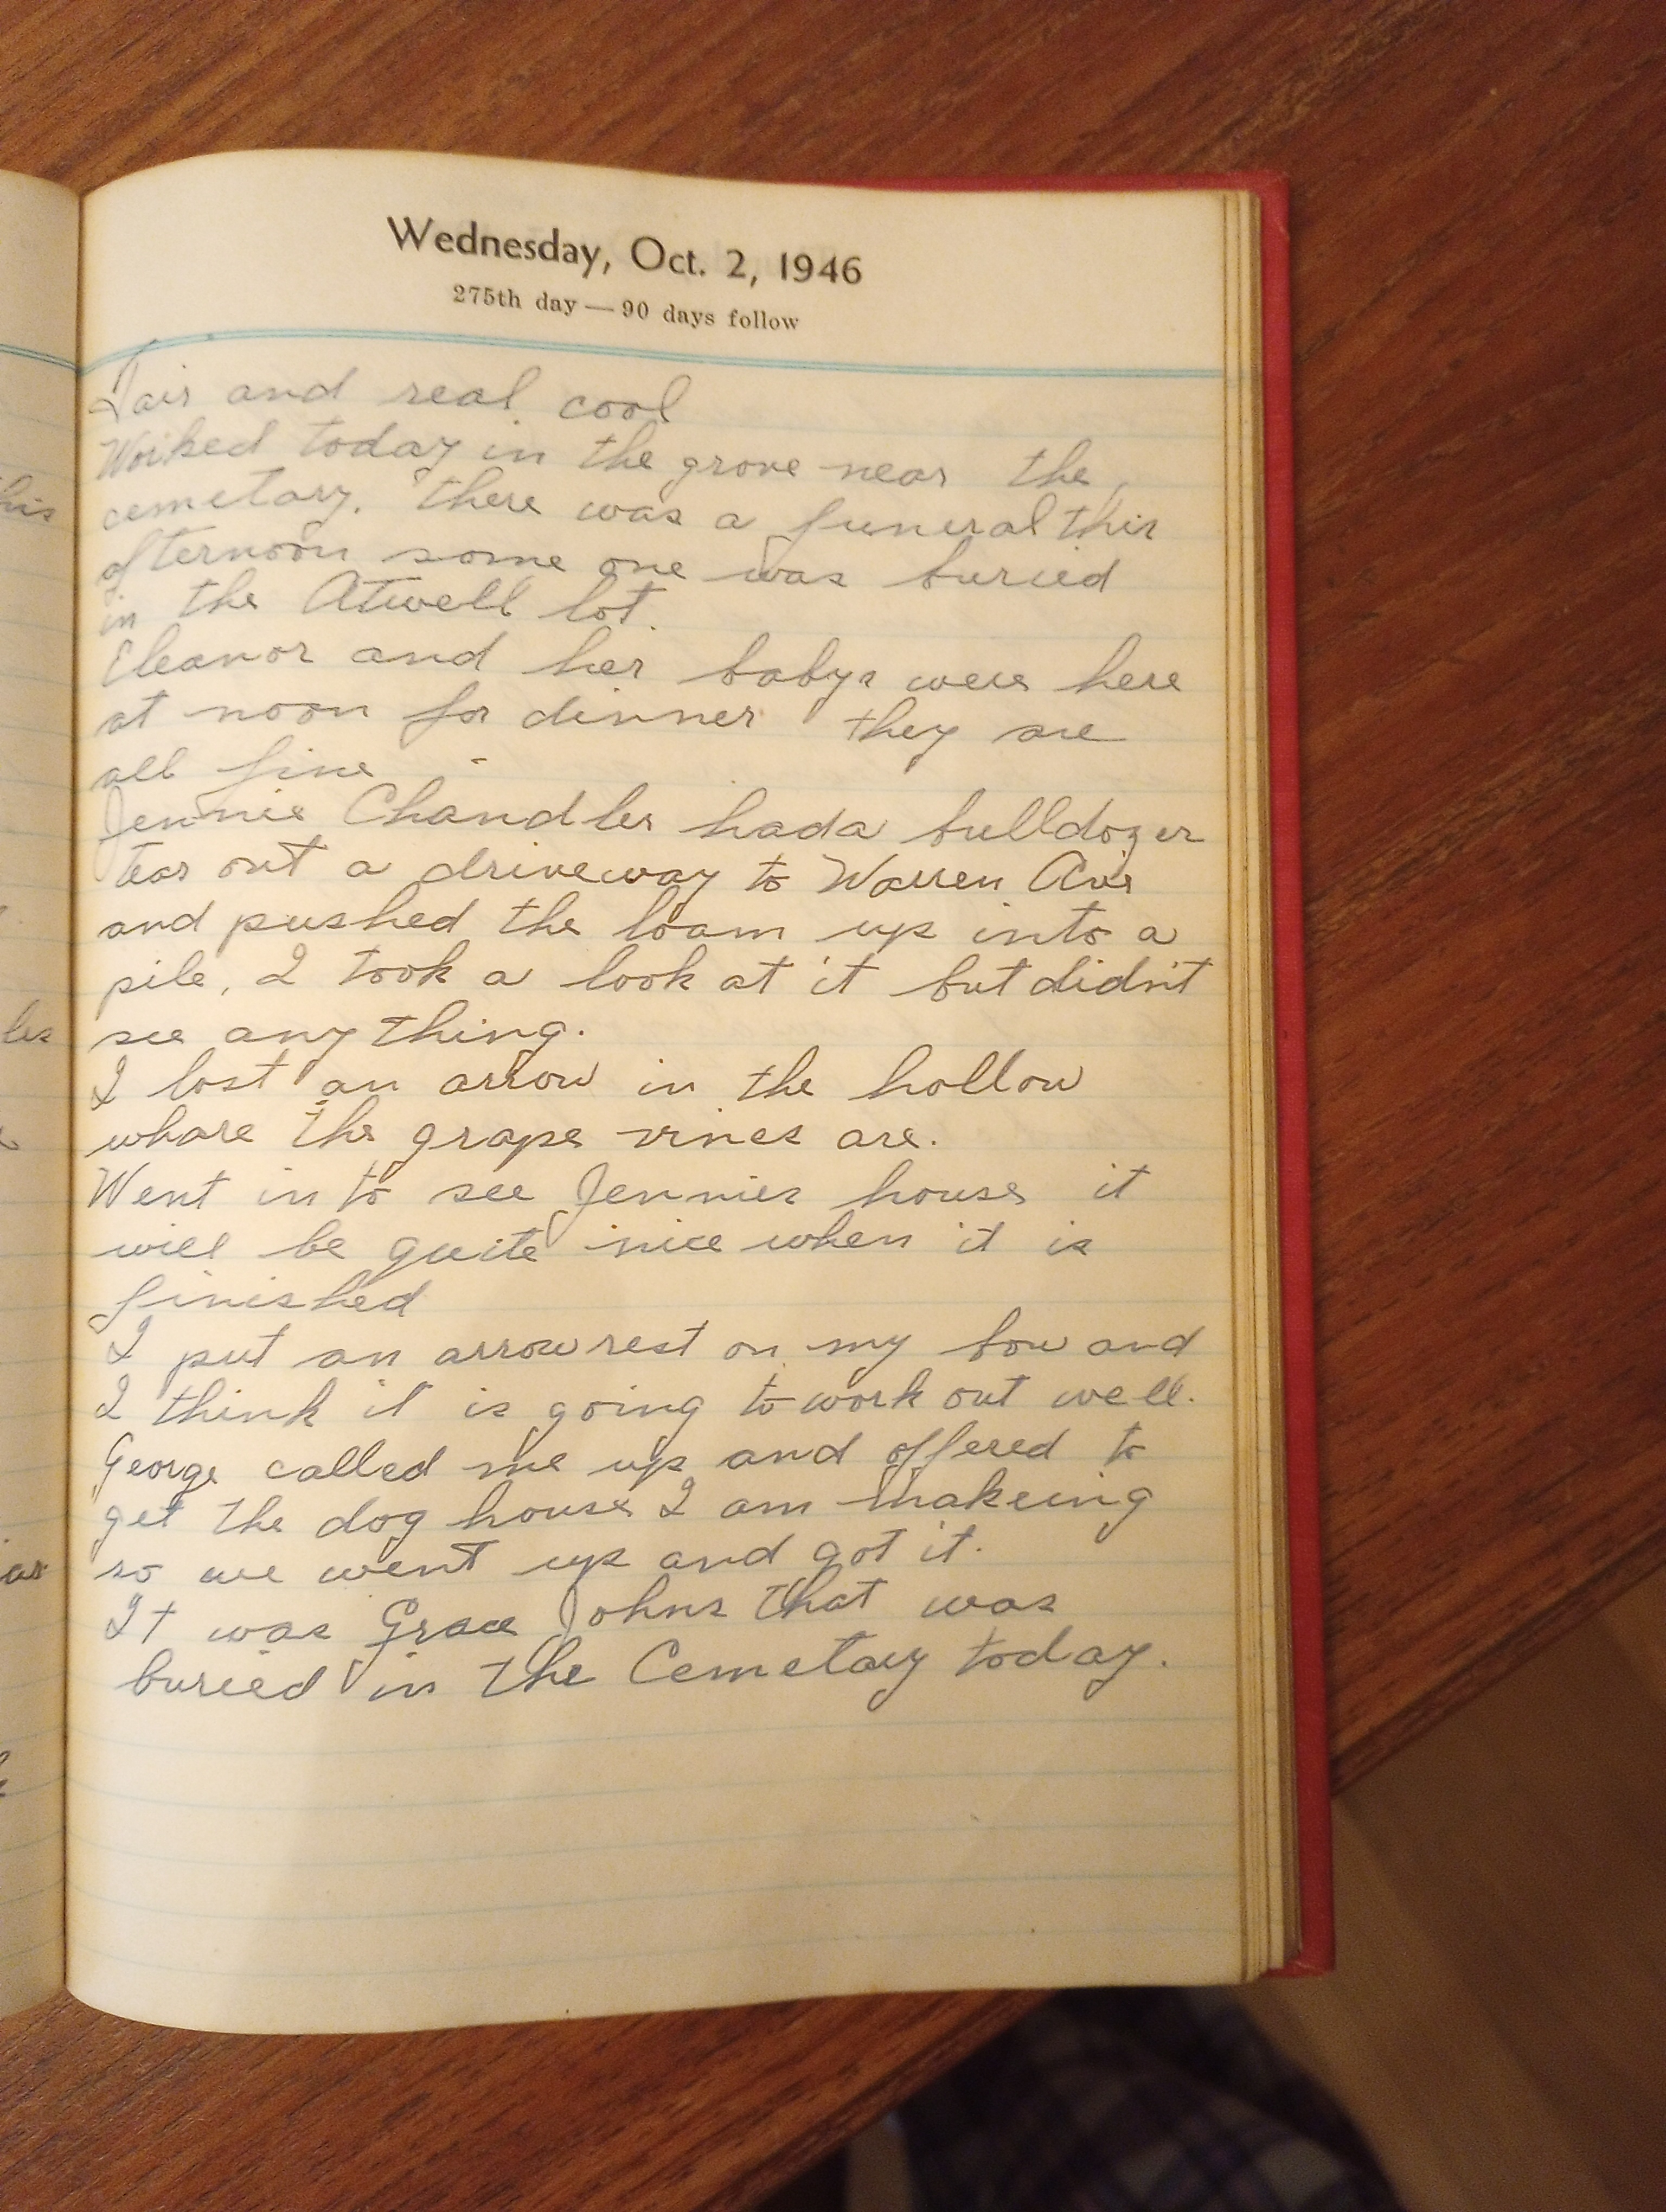 Wednesday, Oct. 2, 1946
275th day — 90 days follow
Fair and real cool
Worked today in the grove near the
cemetary. there was a funeral this
afternoon some one was buried
in the Atwell lot.
Eleanor and her babys were here
at noon for dinner they are
all fine
Jennie Chandler had a bulldozer
tear out a driveway to Warren Ave
and pushed the loam up into a
pile, I took a look at it but didn't
see any thing.
I lost an arrow in the hollow
whare the grape vines are.
Went in to see Jennies house it
will be quite nice when it is
finished
I put an arrow rest on my bow and
I think it is going to work out well.
George called me up and offered to
get the dog house I am makeing
so we went up and got it.
It was Grace Johns that was
buried in the Cemetary today.
his
les
as